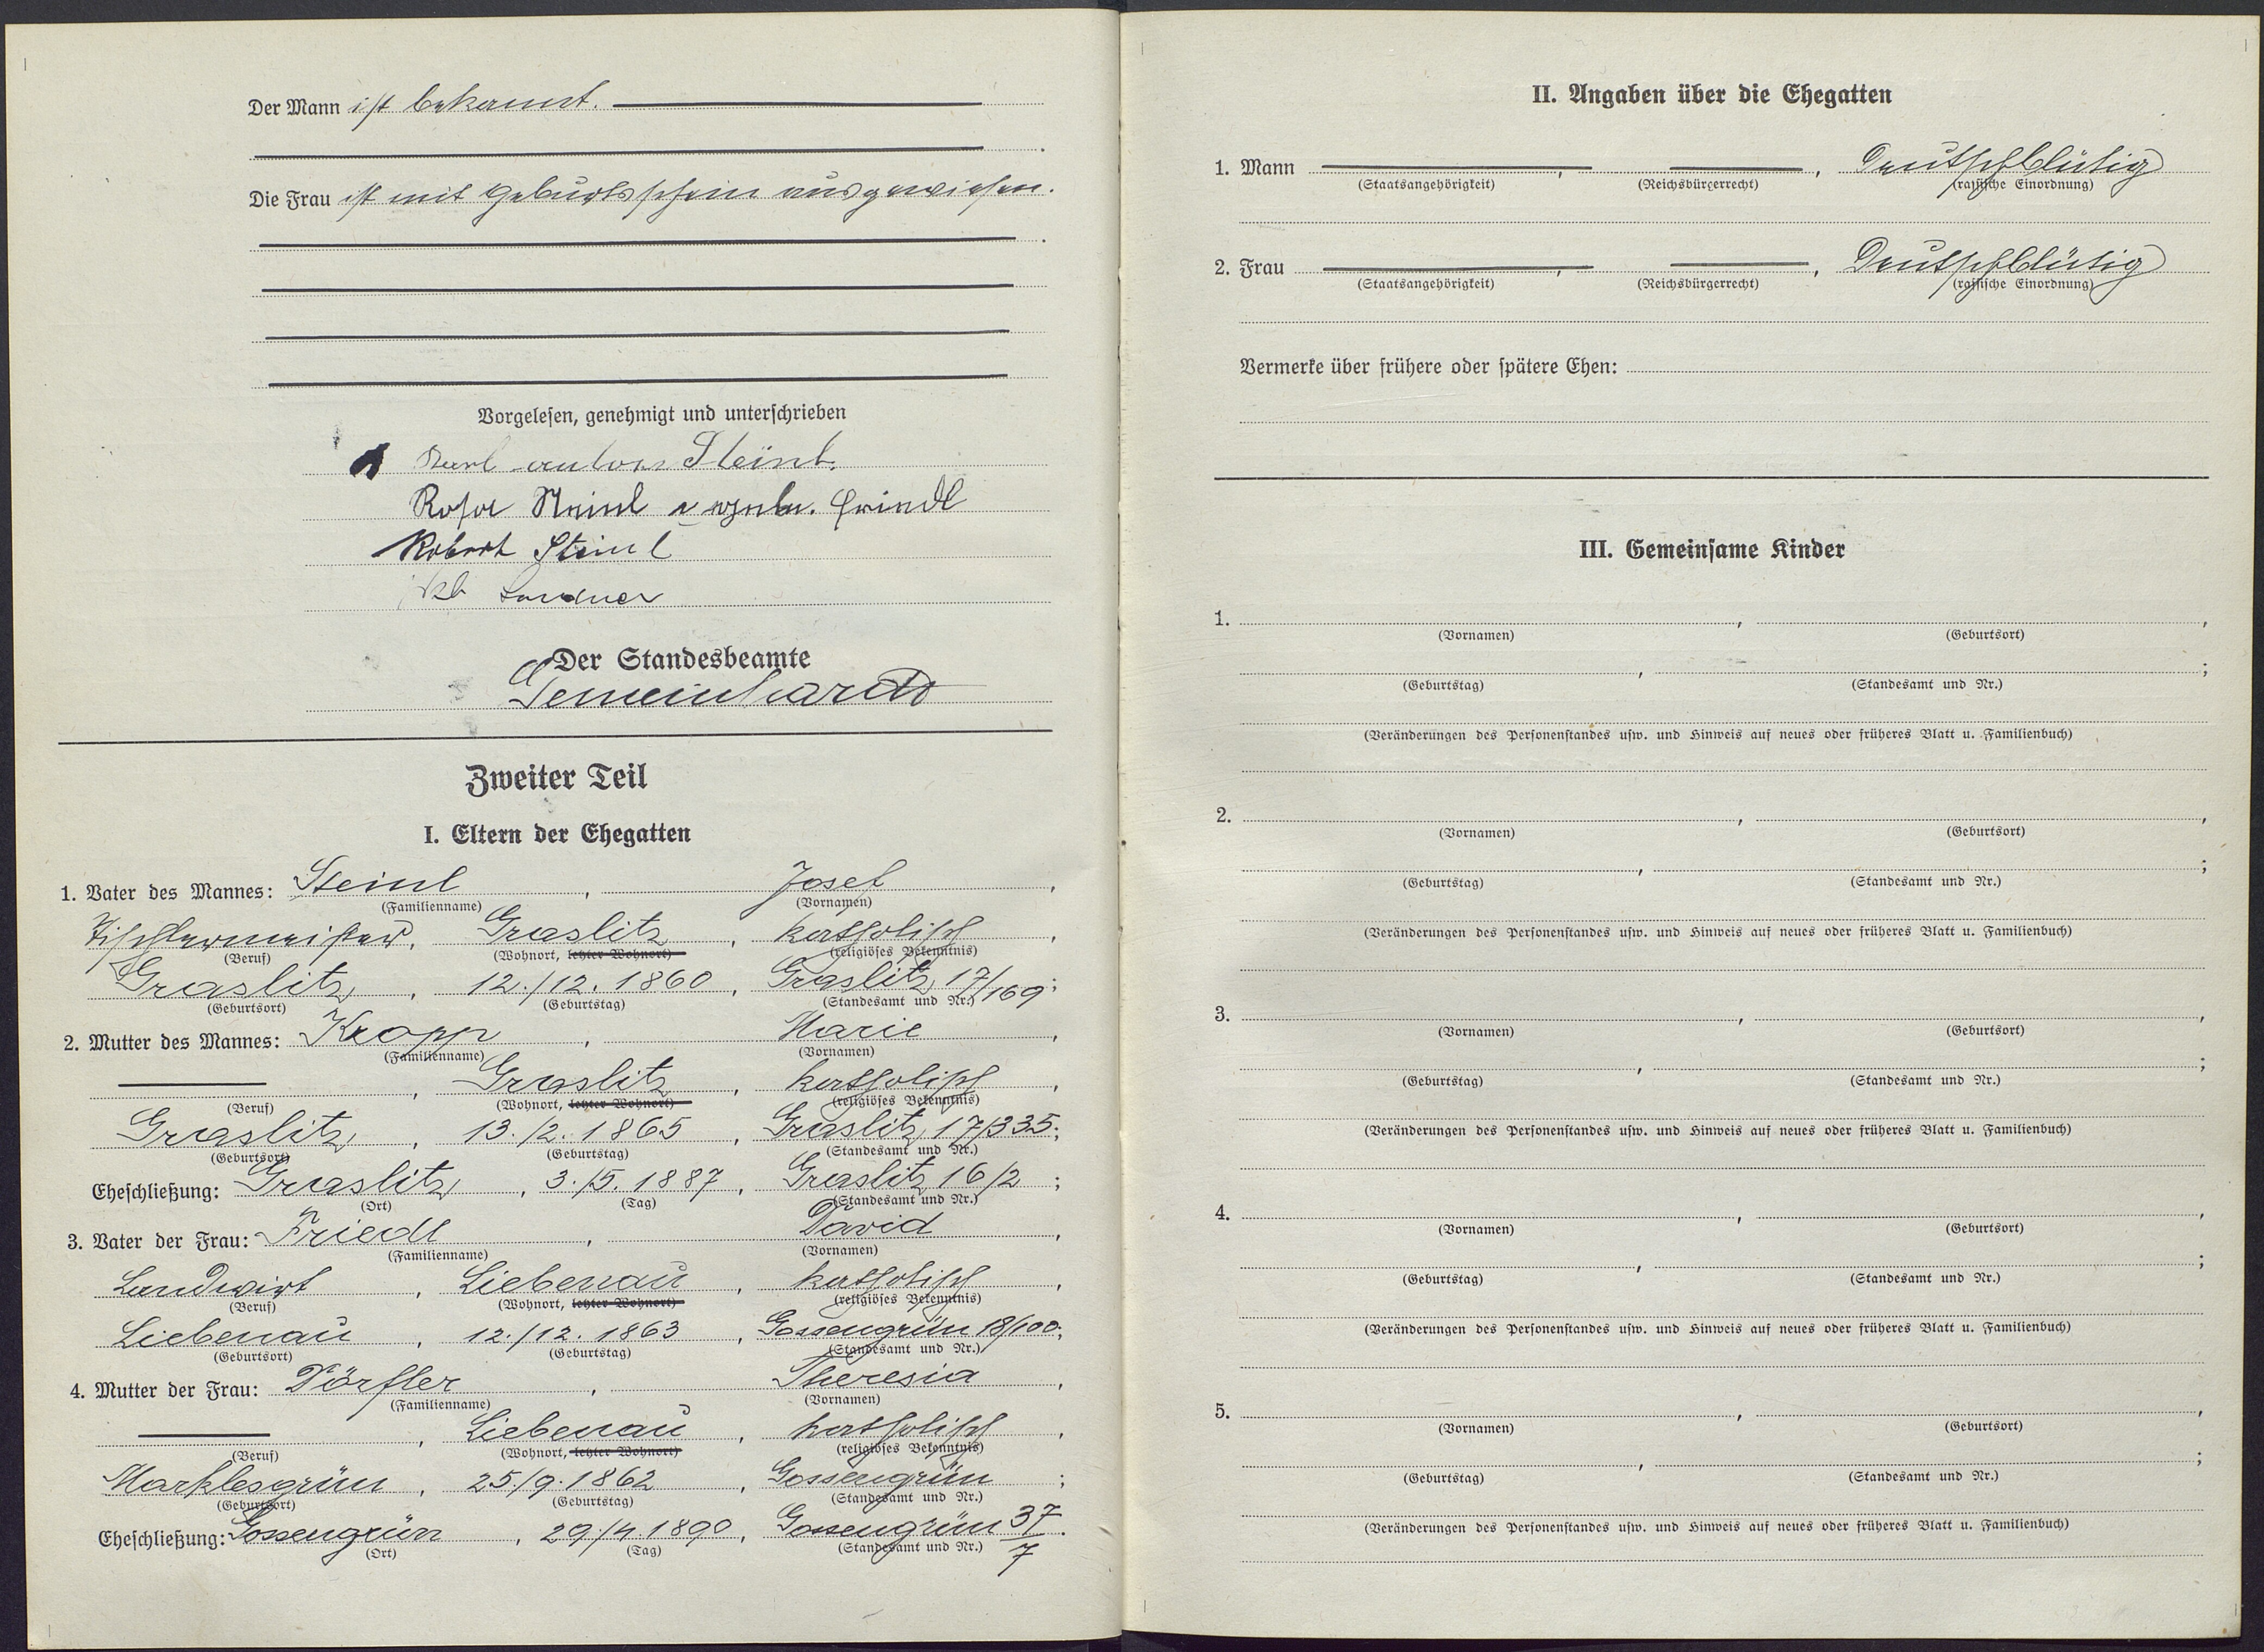 Der Mann ist bekannt.
Die Frau ist mit Geburtsschein ausgewiesen.
Vorgelesen, genehmigt und unterschrieben
Karl Anton Steinl.
Rosa Steinl Friedl
Robert Steinl
Der Standesbeamte
Gemeinhardt
Zweiter Teil
I. Eltern der Ehegatten
1. Vater des Mannes: Steinl, Josef,
(Familienname) (Vornamen)
Tischlermeister, Graslitz, katholisch,
(Beruf) (Wohnort, letzter Wohnort) (religiöses Bekenntnis)
Graslitz, 12./12. 1860, Graslitz, 17/169;
(Geburtsort) (Geburtstag) (Standesamt und Nr.)
2. Mutter des Mannes: Kropp, Marie,
(Familienname) (Vornamen)
, Graslitz, katholisch,
(Beruf) (Wohnort, letzter Wohnort) (religiöses Bekenntnis)
Graslitz, 13./2. 1865, Graslitz, 17/335;
(Geburtsort) (Geburtstag) (Standesamt und Nr.)
Eheschließung: Graslitz, 3./5. 1887, Graslitz 16/2;
(Ort) (Tag) (Standesamt und Nr.)
3. Vater der Frau: Friedl, David,
(Familienname) (Vornamen)
Landwirt, Liebenau, katholisch,
(Beruf) (Wohnort, letzter Wohnort) (religiöses Bekenntnis)
Liebenau, 12./12. 1863, Gossengrün 18/100;
(Geburtsort) (Geburtstag) (Standesamt und Nr.)
4. Mutter der Frau: Dörfler, Theresia,
(Familienname) (Vornamen)
, Liebenau, katholisch,
(Beruf) (Wohnort, letzter Wohnort) (religiöses Bekenntnis)
Marklesgrün, 25./9. 1862, Gossengrün;
(Geburtsort) (Geburtstag) (Standesamt und Nr.)
Eheschließung: Gossengrün, 29./4 1890, Gossengrün 37/7.
(Ort) (Tag) (Standesamt und Nr.)
II. Angaben über die Ehegatten
1. Mann , , Deutschblütig
(Staatsangehörigkeit) (Reichsbürgerrecht) (rassische Einordnung)
2. Frau , , Deutschblütig
(Staatsangehörigkeit) (Reichsbürgerrecht) (rassische Einordnung)
Vermerke über frühere oder spätere Ehen:
III. Gemeinsame Kinder
1. , ,
(Vornamen) (Geburtsort)
, ;
(Geburtstag) (Standesamt und Nr.)
(Veränderungen des Personenstandes usw. und Hinweis auf neues oder früheres Blatt u. Familienbuch)
2. , ,
(Vornamen) (Geburtsort)
, ;
(Geburtstag) (Standesamt und Nr.)
(Veränderungen des Personenstandes usw. und Hinweis auf neues oder früheres Blatt u. Familienbuch)
3. , ,
(Vornamen) (Geburtsort)
, ;
(Geburtstag) (Standesamt und Nr.)
(Veränderungen des Personenstandes usw. und Hinweis auf neues oder früheres Blatt u. Familienbuch)
4. , ,
(Vornamen) (Geburtsort)
, ;
(Geburtstag) (Standesamt und Nr.)
(Veränderungen des Personenstandes usw. und Hinweis auf neues oder früheres Blatt u. Familienbuch)
5. , ,
(Vornamen) (Geburtsort)
, ;
(Geburtstag) (Standesamt und Nr.)
(Veränderungen des Personenstandes usw. und Hinweis auf neues oder früheres Blatt u. Familienbuch)